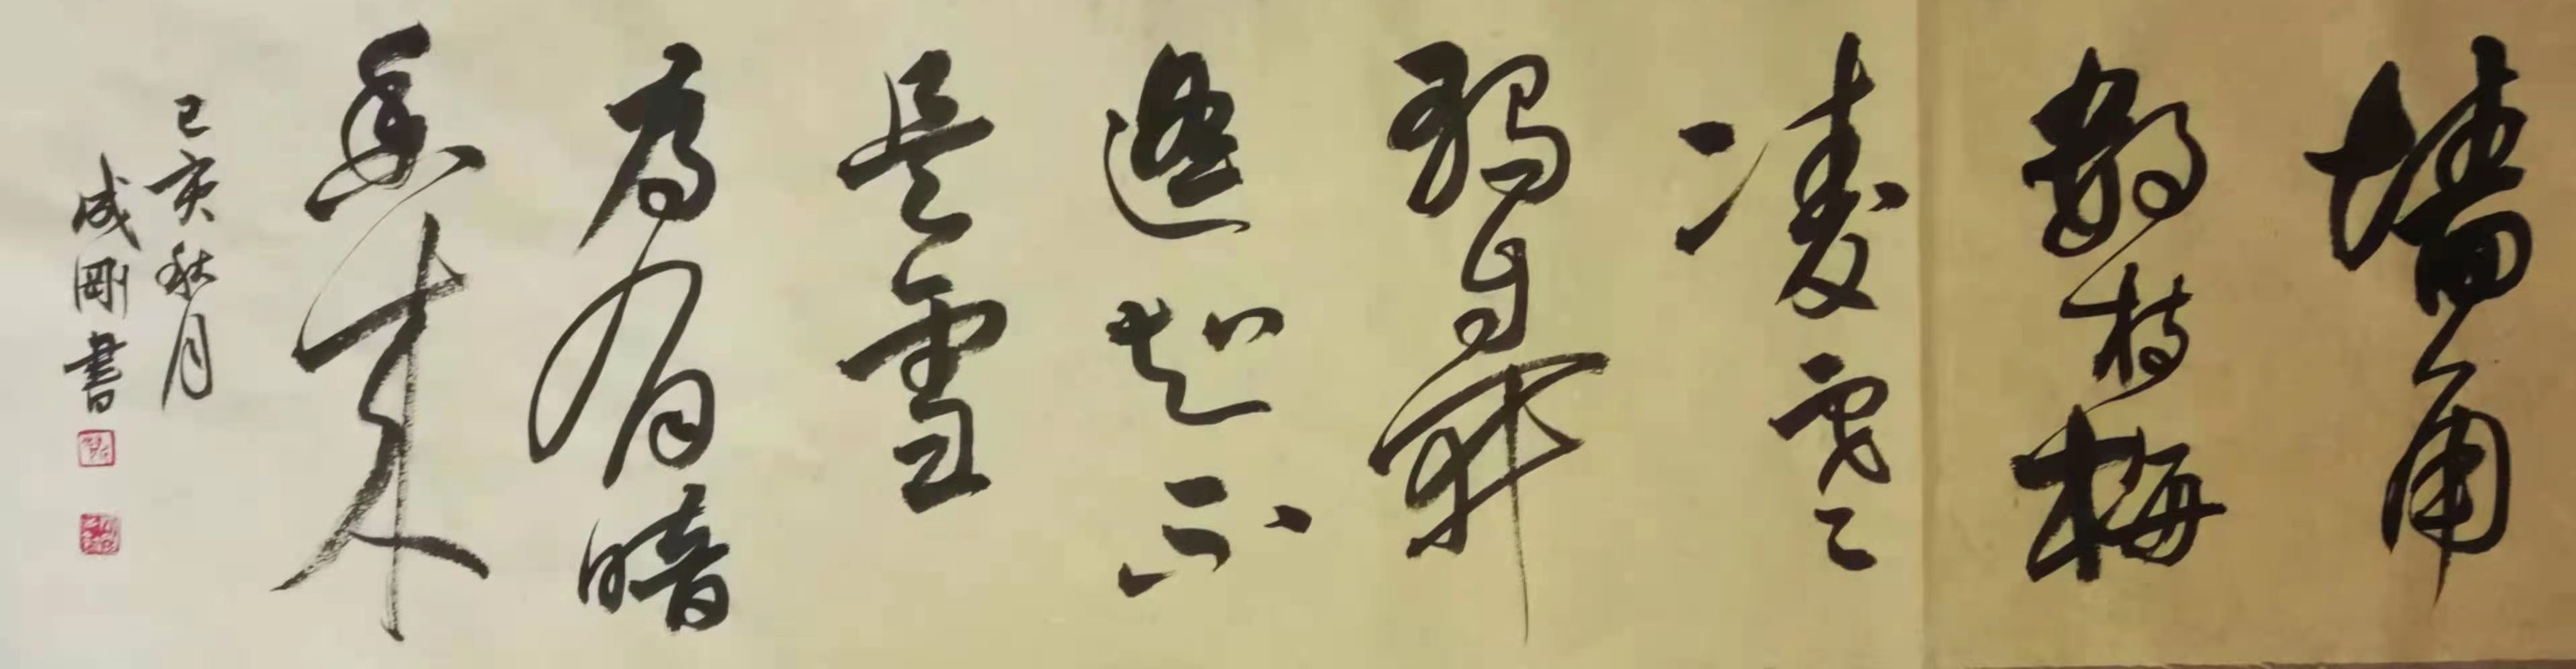 墙角
数枝梅
凌寒
獨自開
遥知不
是雪
為有暗
香来
己亥秋月
成剛書